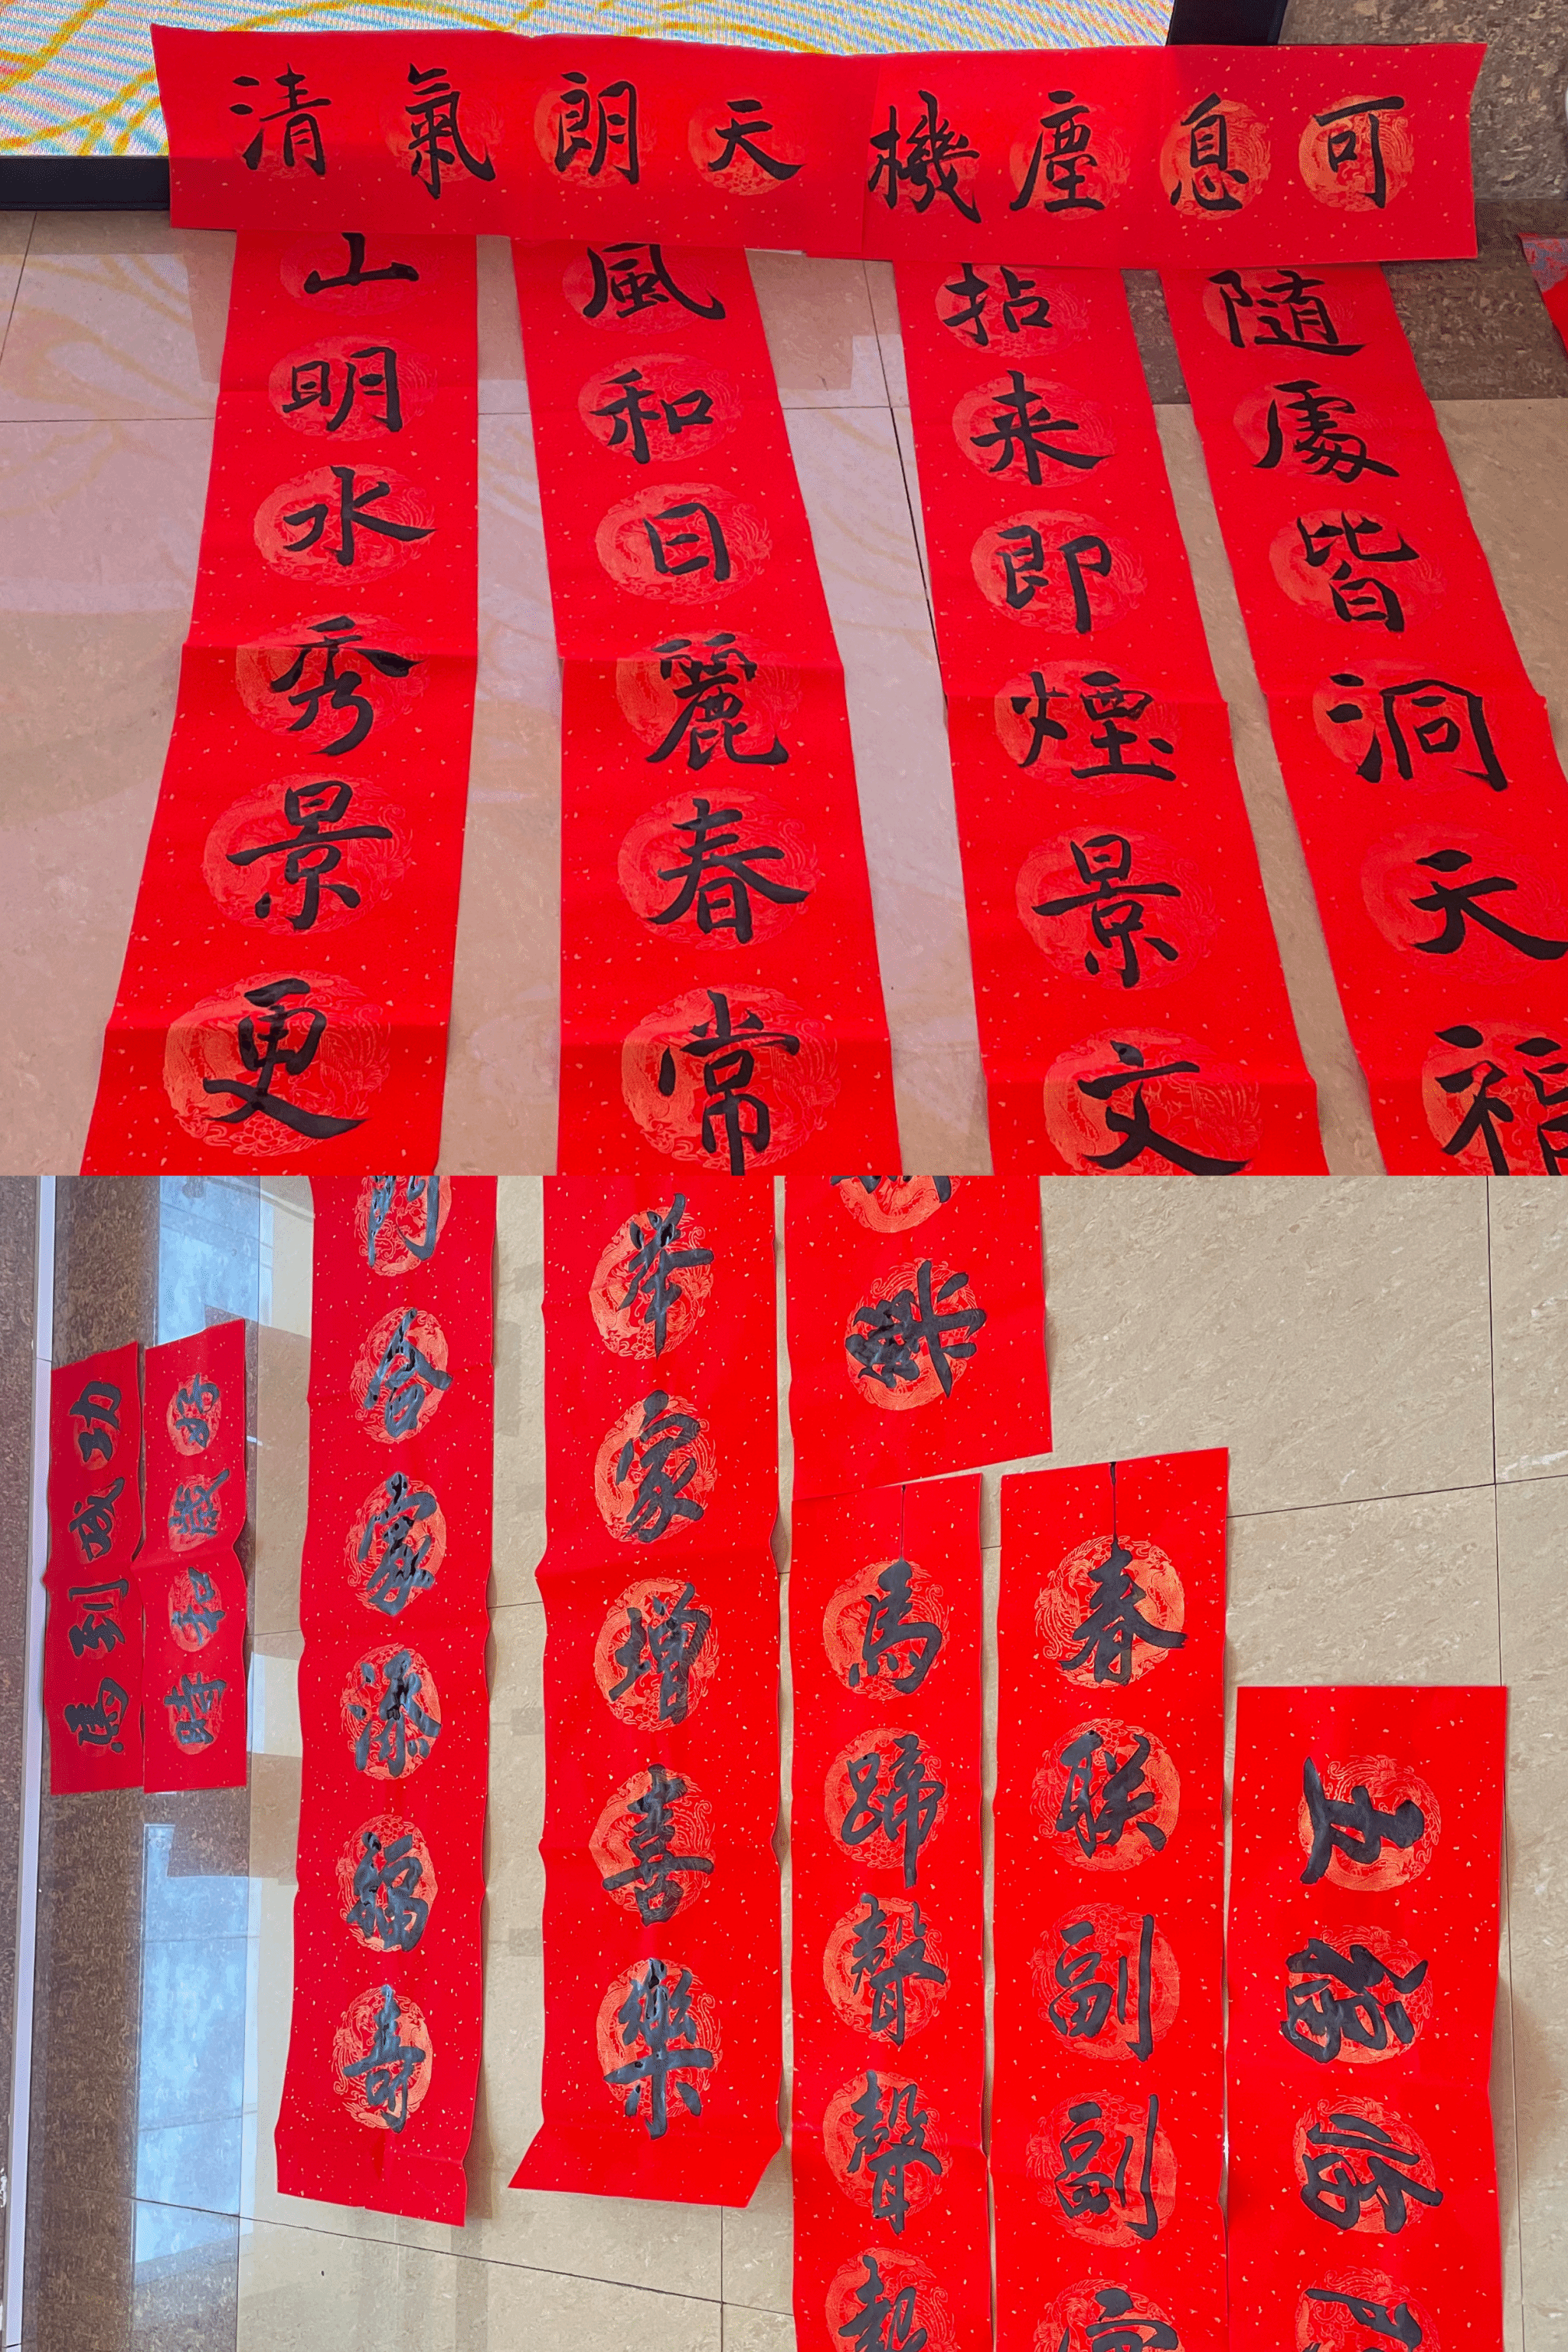 可息塵機
天朗氣清
随處皆洞天福
拈来即煙景文
風和日麗春常
山明水秀景更
五福临
春联副副
馬蹄聲聲
举家增喜樂
合家添福寿
時和歲好
馬到成功